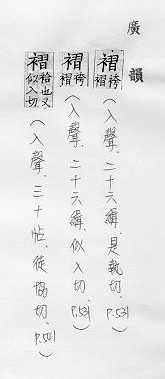 廣韻
褶袴褶(入聲.二十六緝.是執切.P.531)
褶袴褶(入聲.二十六緝.似入切.P.531)
褶袷也又似入切(入聲.三十帖.徒協切.P.541)